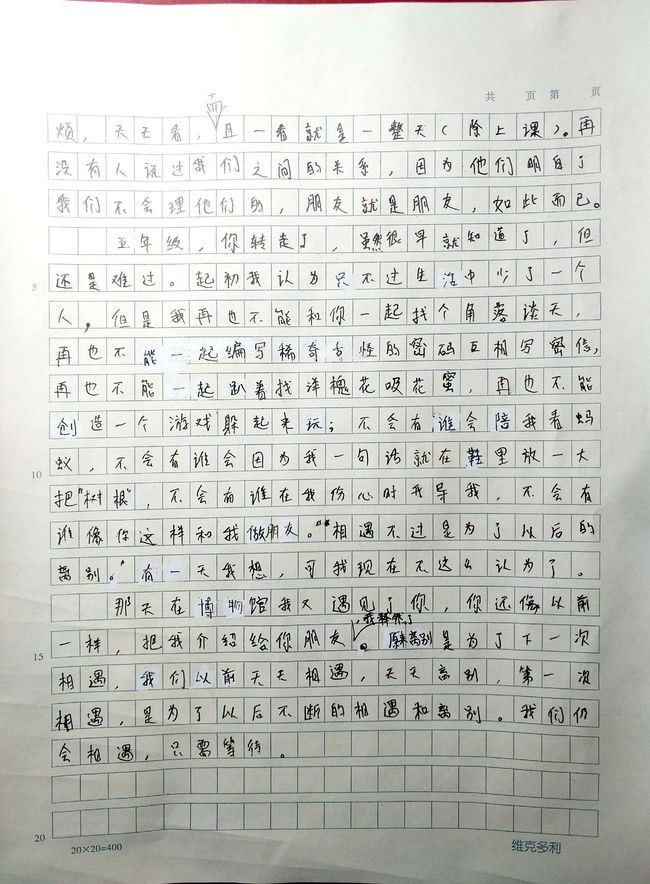 共 页 第 页
而
烦，天天看，且一看就是一整天(除上课)。再
没有人说过我们之间的关系，因为他们明白了
我们不会理他们的，朋友就是朋友，如此而已。
五年级，你转走了，虽然很早就知道了，但
5 还是难过。起初我认为只不过生活中少了一个
人，但是我再也不能和你一起找个角落谈天，
再也不能一起编写稀奇古怪的密码互相写密信，
再也不能一起趴着找洋槐花吸花蜜，再也不能
创造一个游戏躲起来玩；不会有谁会陪我看蚂
10 蚁，不会有谁会因为我一句话就在鞋里放一大
把"树根"，不会有谁在我伤心时开导我，不会有
谁像你这样和我做朋友。"相遇不过是为了以后的
离别。"有一天我想，可我现在不这么认为了。
那天在博物馆我又遇见了你，你还像以前
，我释然了
15 一样，把我介绍给你朋友。原来离别是为了下一次
相遇，我们以前天天相遇，天天离别，第一次
相遇，是为了以后不断的相遇和离别。我们仍
会相遇，只需等待。
20
20×20=400 维克多利